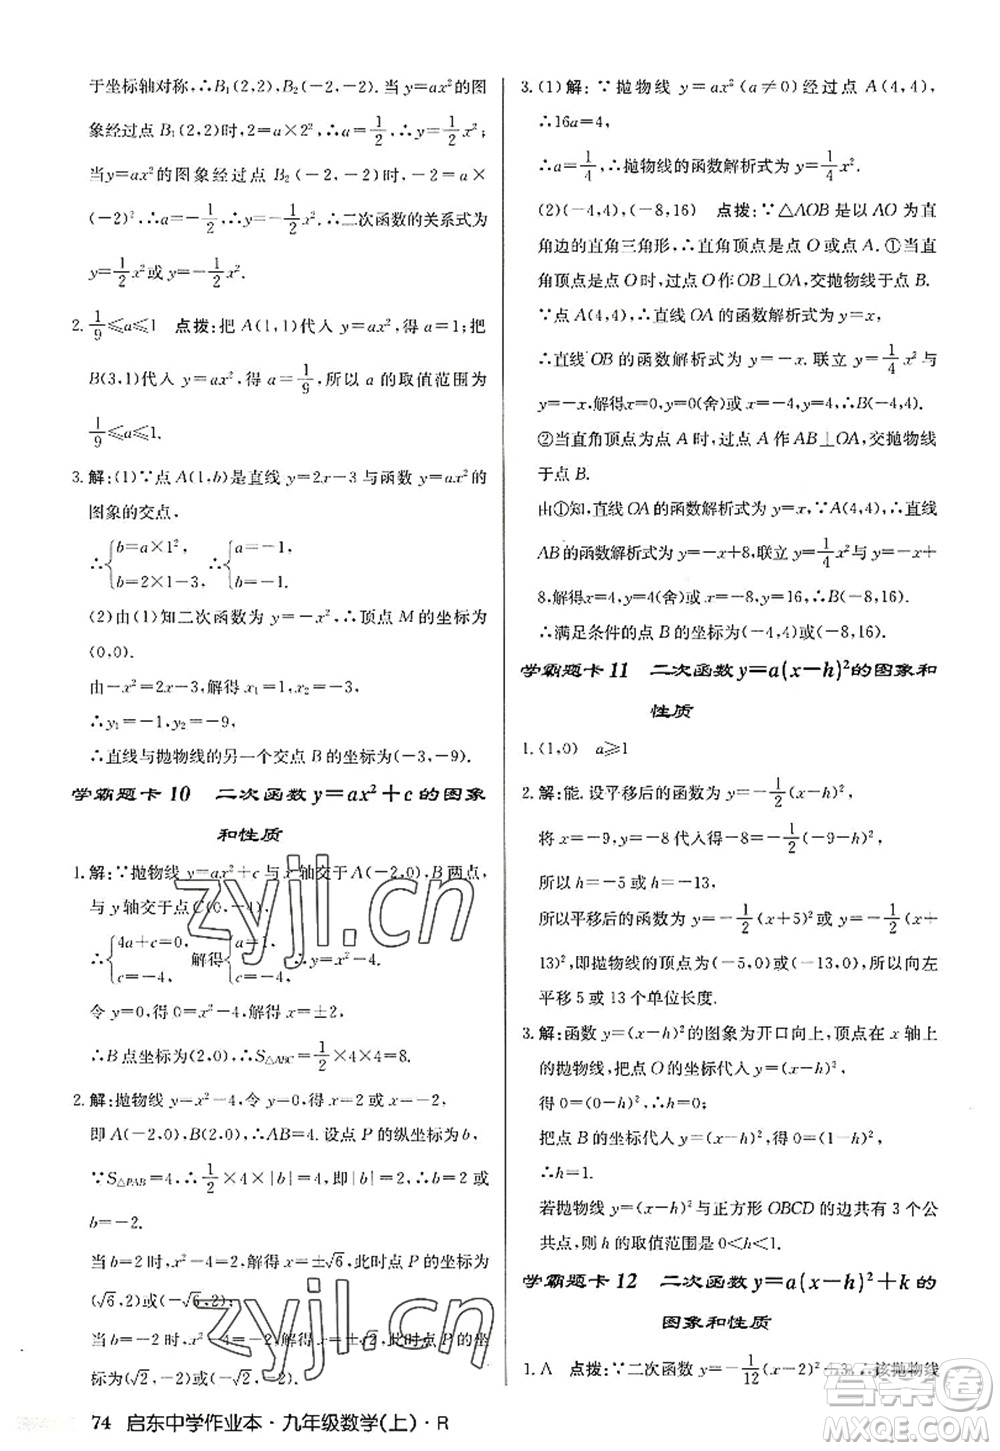 于坐标轴对称,∴B₁(2,2),B₂(-2,-2). 当 y=ax² 的图
象经过点 B₁(2,2)时,2=a×2²,∴a=1/2,∴y=1/2x²;
当 y=ax² 的图象经过点 B₂(-2,-2)时,-2=a×
(-2)²,∴a=-1/2,∴y=-1/2x²,∴二次函数的关系式为
y=1/2x²或y=-1/2x².
2. 1/9≤a≤1 点拨:把 A(1,1)代入 y=ax²,得 a=1;把
B(3,1)代入 y=ax²,得 a=1/9,所以 a 的取值范围为
1/9≤a≤1.
3. 解:(1)∵点 A(1,b)是直线 y=2x-3 与函数 y=ax² 的
图象的交点,
∴{b=a×1², b=2×1-3, ∴{a=-1, b=-1.
(2)由(1)知二次函数为 y=-x²,∴顶点 M 的坐标为
(0,0).
由-x²=2x-3,解得 x₁=1,x₂=-3,
∴y₁=-1,y₂=-9,
∴直线与抛物线的另一个交点 B 的坐标为(-3,-9).
学霸题卡 10 二次函数 y=ax²+c 的图象
和性质
1. 解:∵抛物线 y=ax²+c 与 x 轴交于 A(-2,0),B 两点,
与 y 轴交于点 C(0,-4).
∴{4a+c=0, c=-4. 解得{a=1, c=-4. ∴y=x²-4.
令 y=0,得 0=x²-4,解得 x=±2,
∴B 点坐标为(2,0),∴S△ABC=1/2×4×4=8.
2. 解:抛物线 y=x²-4,令 y=0,得 x=2 或 x=-2,
即 A(-2,0),B(2,0),∴AB=4. 设点 P 的纵坐标为 b,
∵S△PAB=4,∴1/2×4×|b|=4,即|b|=2,∴b=2 或
b=-2.
当 b=2 时,x²-4=2,解得 x=±√6,此时 P 点坐标为
(√6,2)或(-√6,2);
当 b=-2 时,x²-4=-2,解得 x=±√2,此时 P 点坐标
为(√2,-2)或(-√2,-2).
74 启东中学作业本·九年级数学(上)·R
3. (1)解:∵抛物线 y=ax²(a≠0)经过点 A(4,4),
∴16a=4,
∴a=1/4,∴抛物线的函数解析式为 y=1/4x².
(2)(-4,4),(-8,16) 点拨:∵△AOB 是以 AO 为直
角边的直角三角形,∴直角顶点是点 O 或点 A.①当直
角顶点是点 O 时,过点 O 作 OB⊥OA,交抛物线于点 B.
∵点 A(4,4),∴直线 OA 的函数解析式为 y=x,
∴直线 OB 的函数解析式为 y=-x. 联立 y=1/4x² 与
y=-x.解得x=0,y=0(舍)或x=-4,y=4,∴B(-4,4).
②当直角顶点为点 A 时,过点 A 作 AB⊥OA,交抛物线
于点 B.
由①知,直线 OA 的函数解析式为 y=x,∵A(4,4),∴直线
AB的函数解析式为 y=-x+8,联立 y=1/4x² 与 y=-x+
8.解得x=4,y=4(舍)或x=-8,y=16,∴B(-8,16).
∴满足条件的点 B 的坐标为(-4,4)或(-8,16).
学霸题卡 11 二次函数 y=a(x-h)²的图象和
性质
1. (1,0) a≥1
2. 解:能. 设平移后的函数为 y=-1/2(x-h)²,
将 x=-9,y=-8 代入得-8=-1/2(-9-h)²,
所以 h=-5 或 h=-13,
所以平移后的函数为 y=-1/2(x+5)²或 y=-1/2(x+
13)²,即抛物线的顶点为(-5,0)或(-13,0),所以向左
平移 5 或 13 个单位长度.
3. 解:函数 y=(x-h)²的图象为开口向上,顶点在 x 轴上
的抛物线,把点 O 的坐标代入 y=(x-h)²,
得 0=(0-h)²,∴h=0;
把点 B 的坐标代入 y=(x-h)²,得 0=(1-h)²,
∴h=1.
若抛物线 y=(x-h)²与正方形 OBCD 的边共有 3 个公
共点,则 h 的取值范围是 0<h<1.
学霸题卡 12 二次函数 y=a(x-h)²+k 的
图象和性质
1. A 点拨:∵二次函数 y=-1/12(x-2)²+3,∴该抛物线
zyjl.cn
zyjl.cn
答案圈
MXQE.COM